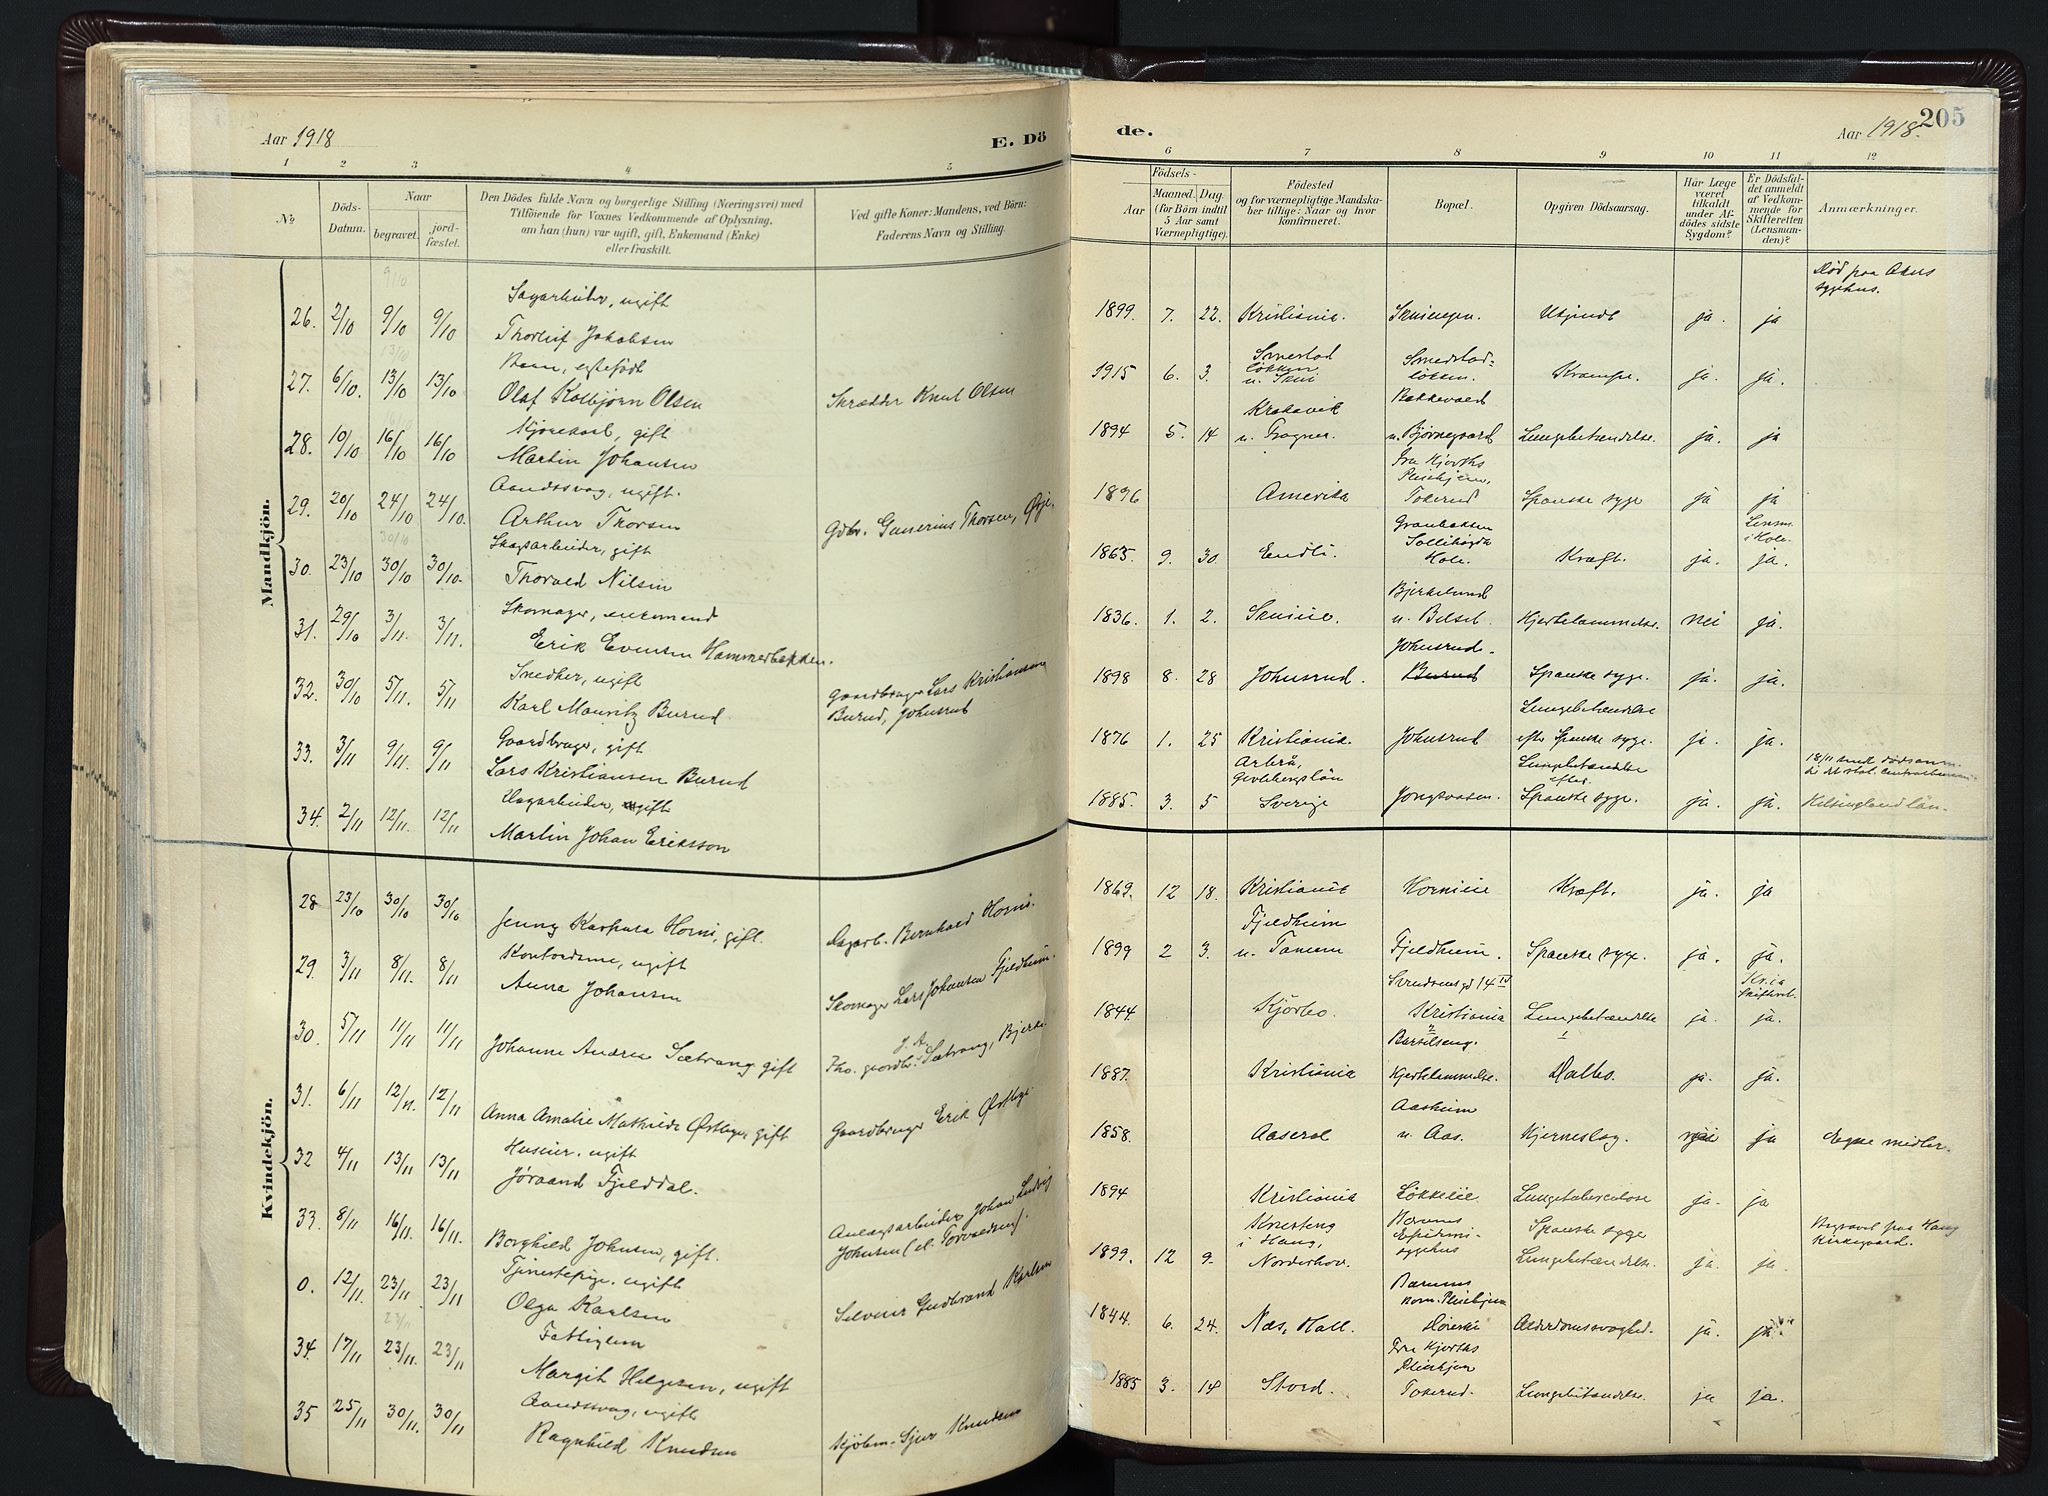 Aar 1918
E. Dö
1 2 3 4 5
№
Döds-
Datum.
Naar
begravet.
jord-
fæstet.
Den Dödes fulde Navn og borgerlige Stilling (Næringsvei) med
Tilföiende for Voxnes Vedkommende af Oplysning,
om han (hun) var ugift, gift, Enkemand (Enke)
eller fraskilt.
Ved gifte Koner: Mandens, ved Börn:
Faderens Navn og Stilling.
Mandkjön.
9/10
Sagarbeider, ugift
26. 2/10 9/10 9/10 Thorleif Jakobsen
13/10
Barn, egtefödt
27. 6/10 13/10 13/10 Olaf Kolbjørn Olsen Skrædder Knut Olsen
Kjørekarl, gift
28. 10/10 16/10 16/10 Martin Johansen
Aandssvag, ugift.
29. 20/10 24/10 24/10. Arthur Thorsen Gdbr. Gunerius Thorsen,
30/10
Skogsarbeider, gift
30. 23/10 30/10 30/10. Thorvald Nilsen
Skomager, enkemand
31. 29/10 3/11. 3/11. Erik Evensen Hammerbakken.
Snedker, ugift
32. 30/10 5/11. 5/11 Karl Mauritz Burud. Gaardbruger Lars Kristiansen
Burud, Johnsrud
Gaardbruger, gift
33. 3/11 9/11. 9/11 Lars Kristiansen Burud
Dagarbeider, gift
34. 2/11 12/11. 12/11 Martin Johan Eriksson
Kvindekjön.
28 23/10 30/10 30/10 Jenny Horni, gift. Dagarb. Bernhard Horni.
Kontordame, ugift
29. 3/11 8/11. 8/11 Anna Johansen Skomager Lars Johansen Fjeldheim.
30. 5/11 11/11 11/11. Johanne Andrea Sætrang gift Fho. gaardbr. J. A. Sætrang, Bjerke
31. 6/11 12/11. 12/11 Anna Amalie Mathilde Østbye, gift Gaardbruger Erik Østbye
Huseier, ugift
32 4/11 13/11 13/11 Jøraand Fjelddal.
33. 8/11 16/11. 16/11. Borghild Johnsen, gift. Anlægsarbeider Johan Ludvig
Johnsen (el. Torvaldsen).
Tjenestepige, ugift
0. 12/11. 23/11 23/11 Olga Karlsen Selveier Gudbrand Karlsen
23/11
Fattiglem
34. 17/11 23/11. 23/11 Margit Helgesen, ugift
Aandssvag, ugift
35 25/11 30/11. 30/11 Ragnhild Knudsen Kjøbm. Sjur Knudsen
de.
Aar 1918.
205
6 7 8 9 10 11 12
Aar
Födsels-
Maaned. Dag.
(for Börn indtil
5 Aar samt
Værnepligtige).
Födested
og for værnepligtige Mandska-
ber tillige: Naar og hvor
konfirmeret.
Bopæl.
Opgiven Dödsaarsag.
Har Læge
været
tilkaldt
under Af-
dödes sidste
Sygdom?
Er Dödsfal-
det anmeldt
af Vedkom-
mende for
Skifteretten
(Lensman-
den)?
Anmærkninger.
Død paa Akers
sygehus.
1899. 7. 22. Kristiania. Skuiengen. Ukjendt ja. ja
Smestad
løkken
u. Skui
Smedstad-
løkken.
1915 6. 3. Krampe. ja. ja.
Krokavik
Bakkevold
1894 5. 14 u. Frogner. u. Bjørnegaard Lungebetændelse. ja. ja
Fru Kjorths
Pleiehjem,
1896 Amerika Tokerud Spanske syge ja ja
Granbakken
Sollihøgda
Lensm.
i Hole.
1863 9. 30. Hole. Kræft. ja. ja.
Bjerkelund
1836. 1. 2. u. Belset Hjertelammelse. nei ja.
Johnsrud.
1898 8. 28 Johnsrud. Burud Spanske syge. ja. ja.
Lungebetændelse
1876 1. 25 Kristiania. Johnsrud efter Spanske syge. ja. ja.
Arbrå,
Gevleborgslän
Lungebetændelse
efter
18/11 sendt dødsanm.
1885. 3. 5 Sverige Spanske syge. ja. ja. Helsingland län
1869. 12 18. Kristiania Hornieie Kræft. ja. ja
Fjeldheim
1899 2 3. u. Tanum Fjeldheim. Spanske syge. ja. ja.
Svendsens gd 14 IV
Kr.ia
skifteret.
1844. Kjørbo. Kristiania Lungebetændelse ja. ja.
2
Bärtilseng.
1
1887. Kristiania Hjertelammelse. Dalbo. ja. ja.
Aasheim
1858. Aaseral u. Aas. Hjerneslag. nei ja Egne medler.
1894 Kristiania Løkkeeie. Lungetuberculose ja. ja
i Haug,
Bærums
Epidemi-
sygehus
Spanske syge
Begravet paa Haug
Kirkegaard.
1899. 12 9. Norderhov. Lungebetændelse. ja. ja.
Bærums
Kom. Pleiehjem
1844. 6. 24. Næs, Hall. Alderdomssvaghed. ja. ja
Fru Kjorths
Pleiehjem
1885 3. 14 Stord. Tokerud. Lungebetændelse. ja ja.